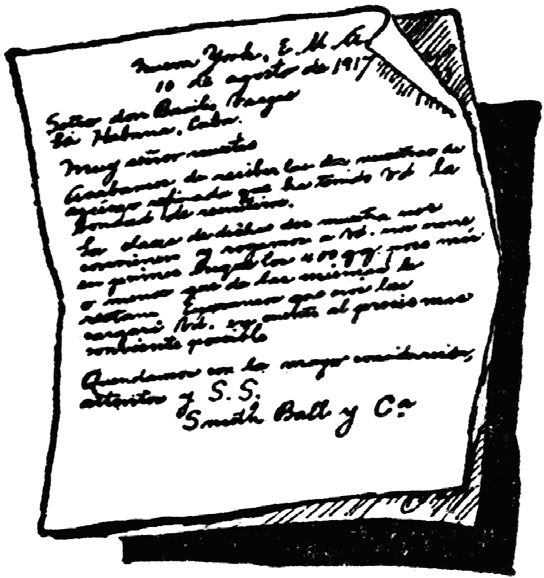 Nueva York, E. U. A.
10 de agosto de 1917
Señor don Basilio Vargas
La Habana, Cuba.
Muy señor nuestro
Acabamos de recibir las dos muestras de
azúcar refinada que ha tenido Vd la
bondad de remitirnos.
La clase de dichas dos muestra nos
convienen y rogamos a Vd. nos
en primer buque los 400 qq poco más
o menos que de las mismas le
restan. Esperamos que nos las
cargará Vd. en cuenta al precio mas
conveniente posible
Quedamos con la mayor consideración,
atentos y S. S.
Smith Ball y Cª